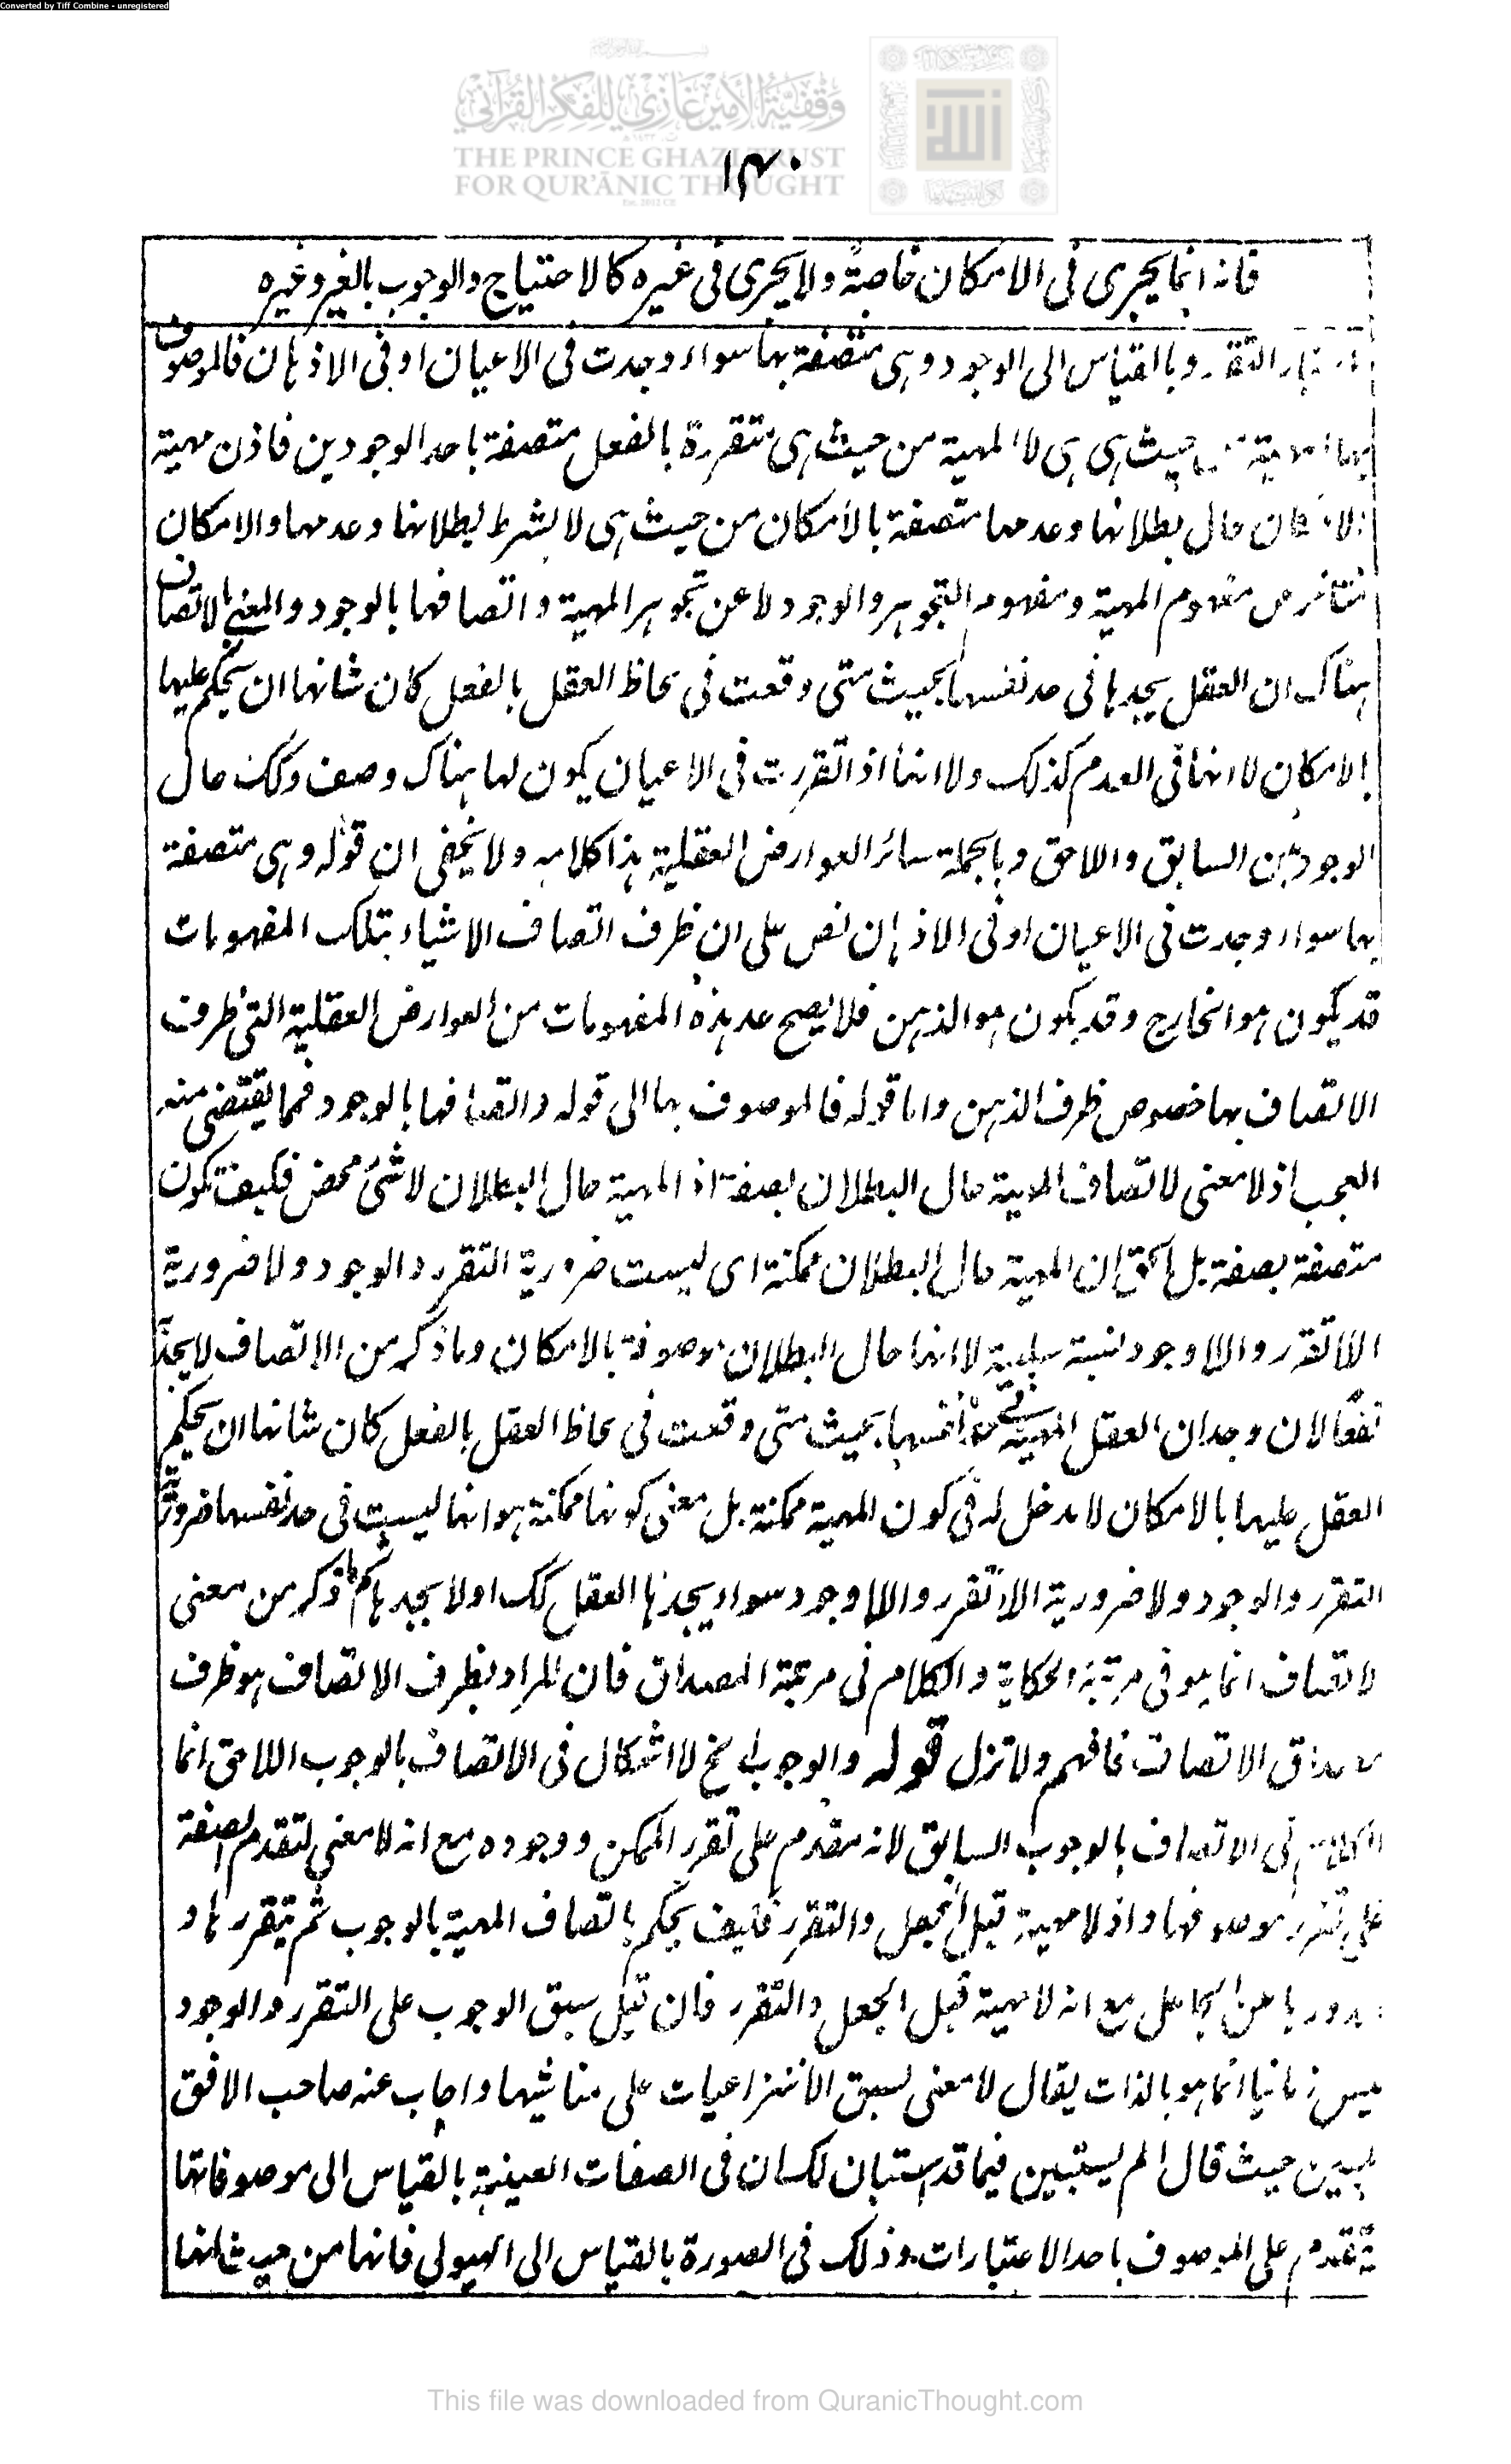 Converted by Tiff Combine - unregistered
وقفية الأمير غازي للفكر القرآني
THE PRINCE GHAZI TRUST
FOR QUR'ĀNIC THOUGHT
١٣٠
فانه انما يجرى فى الامكان خاصةً ولا يجرى فى غيره كالاحتياج والوجوب بالغير وغيره
التقرر وبالقياس الى الوجود وهى متصفة بها سواء وجدت فى الاعيان او فى الاذهان فالموصوف
بها المهية من حيث هى هى لا المهية من حيث هى متقررة بالفعل متصفة باحد الوجودين فاذن مهية
الانسان حال بطلانها وعدمها متصفة بالامكان من حيث هى لا بشرط بطلانها وعدمها والامكان
متاخر عن مفهوم المهية ومفهوم التجوهر والوجود لا عن تجوهر المهية واتصافها بالوجود والمعنى بالاتصاف
هناك ان العقل يجدها فى حد نفسها بحيث متى وقعت فى لحاظ العقل بالفعل كان شانها ان يحكم عليها
بالامكان لا انها فى العدم كذلك ولا انها اذا تقررت فى الاعيان يكون لها هناك وصف وكك حال
الوجوبين السابق واللاحق وبالجملة سائر العوارض العقلية هذا كلامه ولا يخفى ان قوله وهى متصفة
بها سواء وجدت فى الاعيان او فى الاذهان نص على ان ظرف اتصاف الاشياء بتلك المفهومات
قد يكون هو الخارج وقد يكون هو الذهن فلا يصح عد هذه المفهومات من العوارض العقلية التى ظرف
الاتصاف بها خصوص ظرف الذهن واما قوله فالموصوف بها الى قوله واتصافها بالوجود فمما يقتضى منه
العجب اذ لا معنى لاتصاف المهية حال البطلان بصفة اذ المهية حال البطلان لا شئ محض فكيف تكون
متصفة بصفة بل الحق ان المهية حال البطلان ممكنة اى ليست ضرورية التقرر والوجود ولا ضرورية
اللاتقرر واللاوجود نسبة سلبية لا انها حال البطلان موصوفة بالامكان وما ذكر من الاتصاف لا يجدى
نفعًا لان وجدان العقل المهية فى حد نفسها بحيث متى وقعت فى لحاظ العقل بالفعل كان شانها ان يحكم
العقل عليها بالامكان لا مدخل له فى كون المهية ممكنة بل معنى كونها ممكنة هو انها ليست فى حد نفسها ضرورية
التقرر والوجود ولا ضرورية اللاتقرر واللاوجود سواء يجدها العقل كك او لا يجدها كك ما ذكر من معنى
الاتصاف انما هو فى مرتبة الحكاية والكلام فى مرتبة المصداق فان المراد بظرف الاتصاف هو ظرف
مصداق الاتصاف فافهم ولا تزل قوله والوجوب الخ لا اشكال فى الاتصاف بالوجوب اللاحق انما
الكلام فى الاتصاف بالوجوب السابق لانه مقدم على تقرر الممكن ووجوده مع انه لا معنى لتقدم الصفة
على تقرر موصوفها واذ لا مهية قبل الجعل والتقرر فكيف يحكم باتصاف المهية بالوجوب ثم بتقررها و
صدورها عن الجاعل مع انه لا مهية قبل الجعل والتقرر فان قيل سبق الوجوب على التقرر والوجود
ليس زمانيا انما هو بالذات يقال لا معنى لسبق الانتزاعيات على مناشيها واجاب عنه صاحب الافق
المبين حيث قال الم يستبين فيما قد استبان لك ان فى الصفات العينية بالقياس الى موصوفاتها
تقدم على الموصوف باحد الاعتبارات وذلك فى الصورة بالقياس الى الهيولى فانها من حيث انها
This file was downloaded from QuranicThought.com